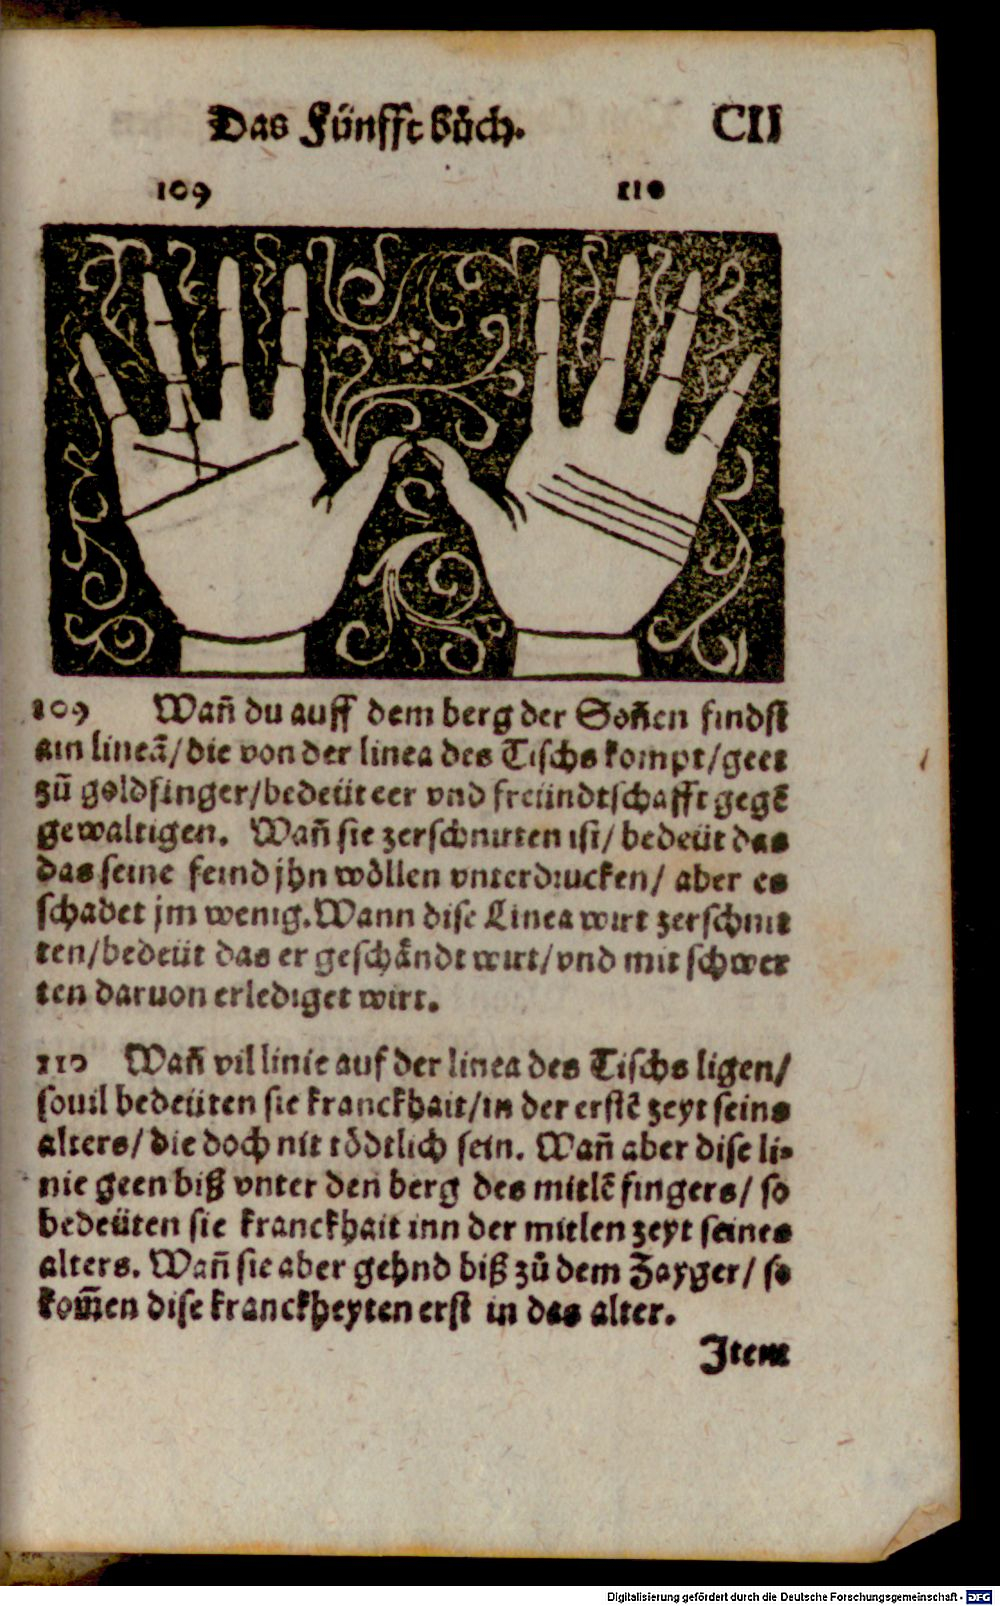 Das Fünfft bůch. CII
109 110
109 Wañ du auff dem berg der Soñen findst
ain lineā/die von der linea des Tischs kompt/geet
zů goldfinger/bedeüt eer vnd freündtschafft gegē
gewaltigen. Wañ sie zerschnitten ist/ bedeüt das
das seine feind jhn wöllen vnterdrucken/ aber es
schadet jm wenig. Wann dise Linea wirt zerschnit
ten/bedeüt das er geschändt wirt/vnd mit schwer
ten daruon erlediget wirt.
110 Wañ vil linie auf der linea des Tischs ligen/
souil bedeüten sie kranckhait/in der erstē zeyt seins
alters/ die doch nit tödtlich sein. Wañ aber dise li-
nie geen biß vnter den berg des mitlē fingers/ so
bedeüten sie kranckhait inn der mitlen zeyt seines
alters. Wañ sie aber gehnd biß zů dem Zayger/ so
kom̃en dise kranckheyten erst in das alter.
Item
Digitalisierung gefördert durch die Deutsche Forschungsgemeinschaft - DFG